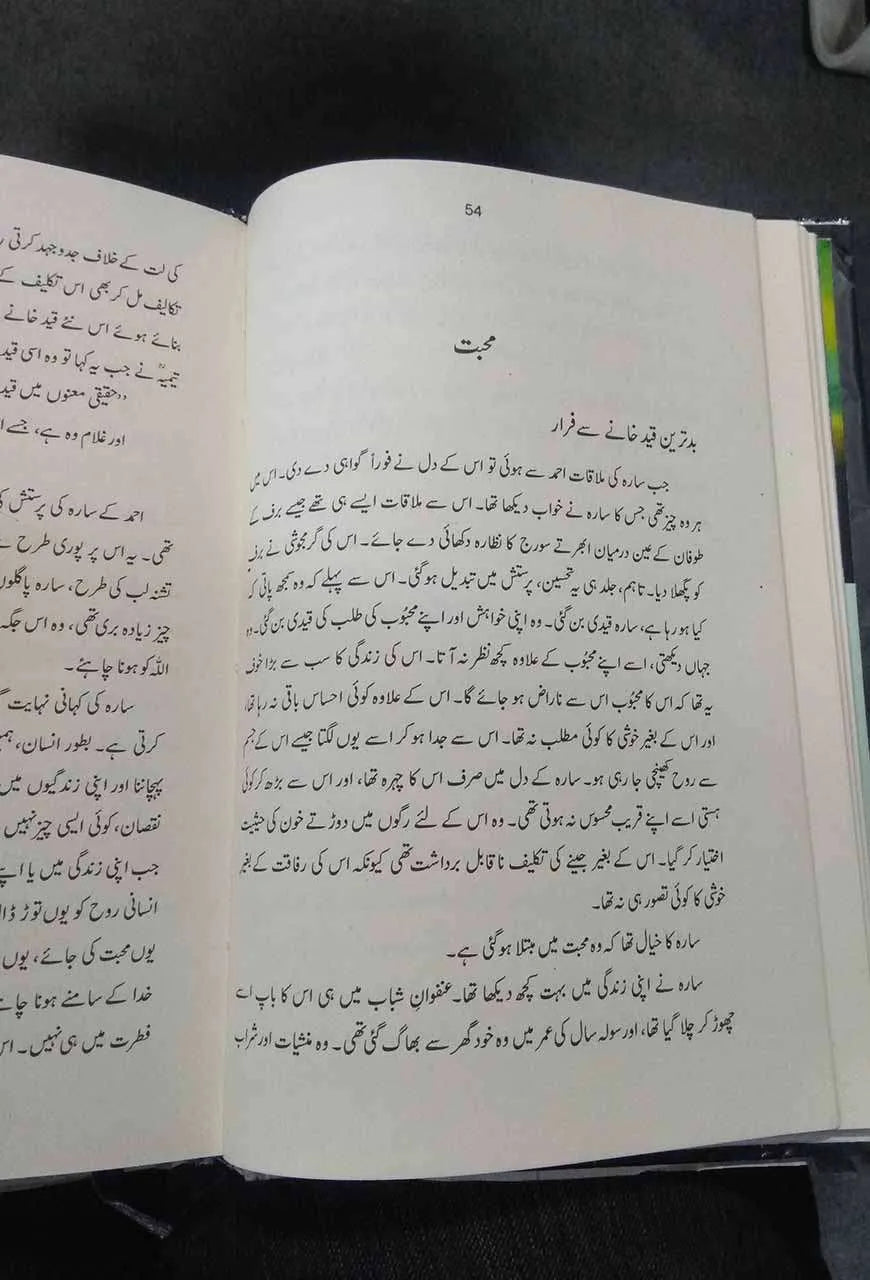 54
محبت
بدترین قید خانے سے فرار
جب سارہ کی ملاقات احمد سے ہوئی تو اس کے دل نے فوراً گواہی دے دی۔ اس میں
ہر وہ چیز تھی جس کا سارہ نے خواب دیکھا تھا۔ اس سے ملاقات ایسے ہی تھے جیسے برف کے
طوفان کے عین درمیان ابھرتے سورج کا نظارہ دکھائی دے جائے۔ اس کی گرمجوشی نے برف
کو پگھلا دیا۔ تاہم، جلد ہی یہ تحسین، پرستش میں تبدیل ہوگئی۔ اس سے پہلے کہ وہ سمجھ پاتی کہ
کیا ہو رہا ہے، سارہ قیدی بن گئی۔ وہ اپنی خواہش اور اپنے محبُوب کی طلب کی قیدی بن گئی۔ وہ
جہاں دیکھتی، اسے اپنے محبوب کے علاوہ کچھ نظر نہ آتا۔ اس کی زندگی کا سب سے بڑا خوف
یہ تھا کہ اس کا محبُوب اس سے ناراض ہو جائے گا۔ اس کے علاوہ کوئی احساس باقی نہ رہا تھا،
اور اس کے بغیر خوشی کا کوئی مطلب نہ تھا۔ اس سے جدا ہو کر اسے یوں لگتا جیسے اس کے جسم
سے روح کھینچی جا رہی ہو۔ سارہ کے دل میں صرف اس کا چہرہ تھا، اور اس سے بڑھ کر کوئی
ہستی اسے اپنے قریب محسوس نہ ہوتی تھی۔ وہ اس کے لئے رگوں میں دوڑتے خون کی حیثیت
اختیار کر گیا۔ اس کے بغیر جینے کی تکلیف نا قابل برداشت تھی کیونکہ اس کی رفاقت کے بغیر
خوشی کا کوئی تصور ہی نہ تھا۔
سارہ کا خیال تھا کہ وہ محبت میں مبتلا ہوگئی ہے۔
سارہ نے اپنی زندگی میں بہت کچھ دیکھا تھا۔ عنفوانِ شباب میں ہی اس کا باپ اسے
چھوڑ کر چلا گیا تھا، اور سولہ سال کی عمر میں وہ خود گھر سے بھاگ گئی تھی۔ وہ منشیات اور شراب
کی لت کے خلاف جدوجہد کرتی
تکالیف مل کر بھی اس تکلیف کے
بنائے ہوئے اس نئے قید خانے
تیمیہؒ نے جب یہ کہا تو وہ اسی قید
”حقیقی معنوں میں قید
اور غلام وہ ہے، جسے
احمد کے سارہ کی پرستش
تھی۔ یہ اس پر پوری طرح
تشنہ لب کی طرح، سارہ پاگلوں
چیز زیادہ بری تھی، وہ اس جگہ
اللہ کو ہونا چاہئے۔
سارہ کی کہانی نہایت
کرتی ہے۔ بطور انسان،
پہچاننا اور اپنی زندگیوں میں
نقصان، کوئی ایسی چیز نہیں
جب اپنی زندگی میں یا
انسانی روح کو یوں توڑ
یوں محبت کی جائے، یوں
خدا کے سامنے ہونا
فطرت میں ہی نہیں۔